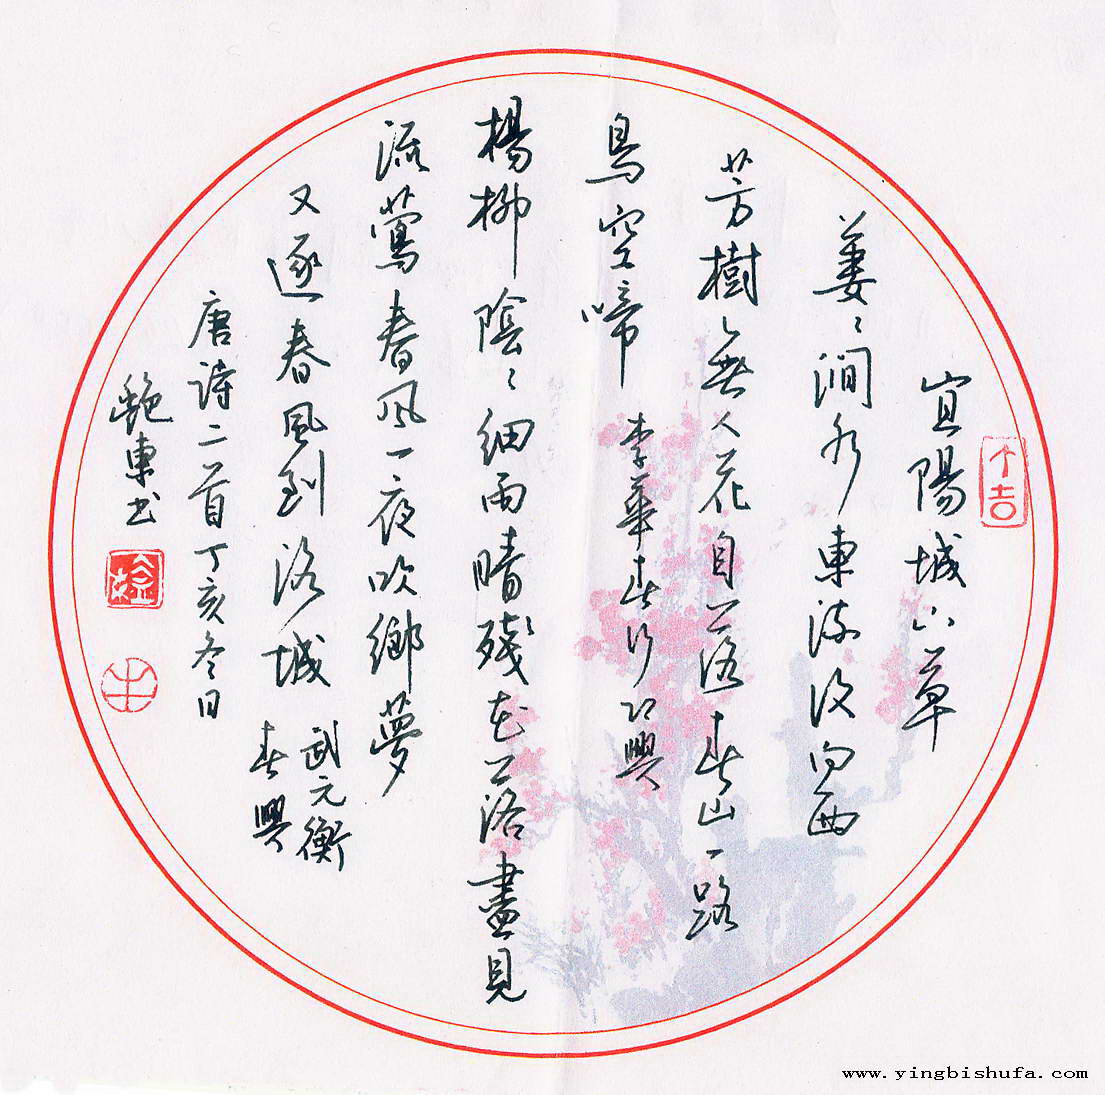 宜陽城下草
萋〻澗水東流復向西
芳樹無人花自落春山一路
鳥空啼 李華春行即興
楊柳陰〻細雨晴殘花落盡見
流鶯春風一夜吹鄉夢
又逐春風到洛城 武元衡
春興
唐詩二首丁亥冬日
鮑東书
www.yingbishufa.com